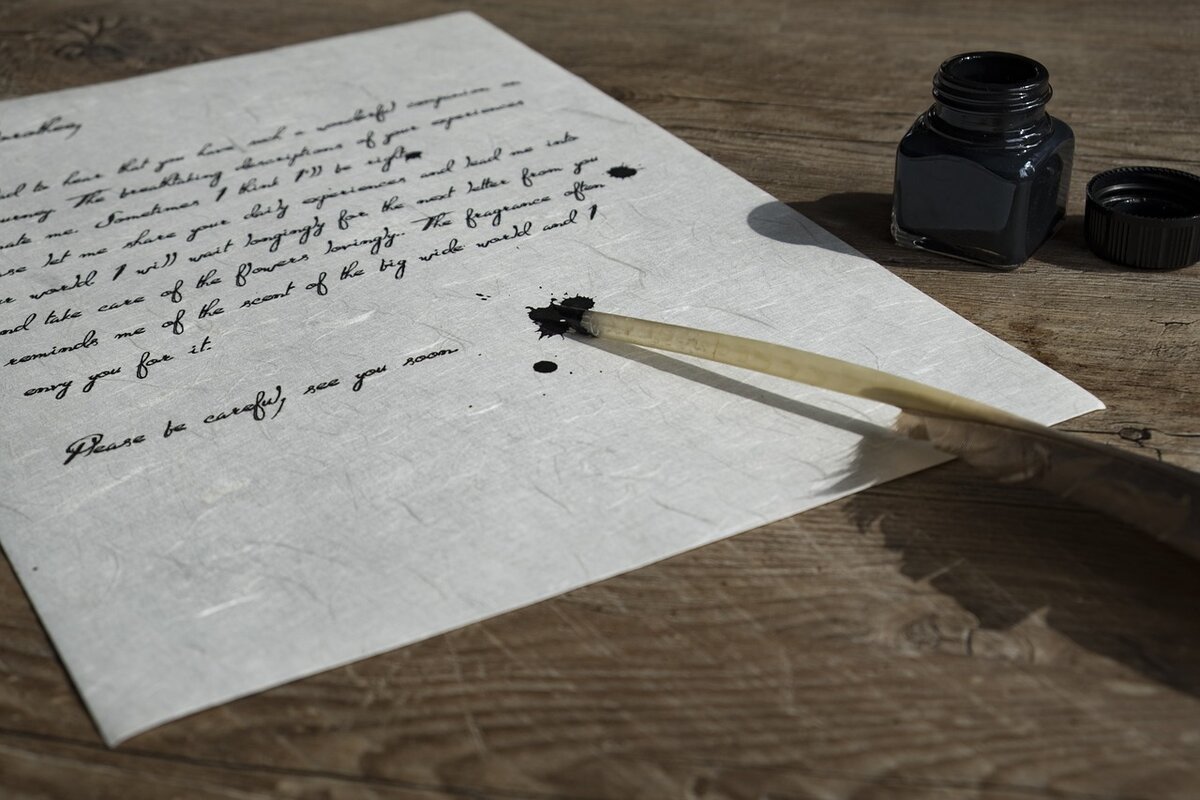 to hear that you have such a wonderful companion on
The breathtaking descriptions of your experiences
me. Sometimes I think I'll be right
let me share your daily experiences and lead me into
world I will wait longingly for the next letter from you
take care of the flowers lovingly.. The fragrance of
reminds me of the scent of the big wide world and I
envy you for it.
Please be careful, see you soon